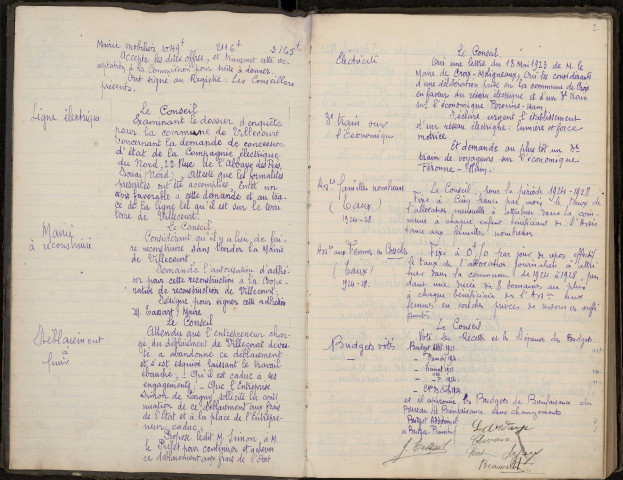 Mairie mobilier 1049f 2116f 3165f
Accepte les dites offres, et transmet cette ac-
ceptation à la Commission pour suite à donner.
Ont signé au Registre : Les Conseillers
présents.
Ligne électrique
Le Conseil
Examinant le dossier d'enquête
pour la commune de Villecourt
concernant la demande de concession
d'état de la Compagnie électrique
du Nord, 22 Rue de l'Abbaye des Prés,
Douai (Nord), atteste que les formalités
prescrites ont été accomplies, Emet un
avis favorable à cette demande et au tra-
cé de la ligne tel qu'il est sur le terri-
toire de Villecourt.
Mairie
à reconstruire
Le Conseil
Considérant qu'il y a lieu de fai-
re reconstruire sans tarder la Mairie
de Villecourt,
Demande l'autorisation d'adhé-
rer pour cette reconstruction à la Coopé-
rative de reconstruction de Villecourt,
Désigne pour signer cette adhésion
M. Maire
Déblaiement
à
finir
Le Conseil
Attendu que l'entrepreneur char-
gé du déblaiement de Villecourt
a abandonné ce déblaiement
et s'est esquivé laissant le travail
ébauché, ! Qu'il est caduc à ses
engagements ! Que l'Entreprise
Simon de sollicite la conti-
nuation de ce déblaiement aux frais
de l'Etat et à la place de l'Entrepre-
neur caduc,
Propose ledit M. Simon, à M.
le Préfet pour continuer et achever
ce déblaiement aux frais de l'Etat.
2
Electricité
Le Conseil.
Ouï une lettre du 13 Mai 1923 de M. le
Maire de Croix-Moligneaux, Ouï les considérants
d'une délibération prise en la commune de Croix
en faveur du réseau électrique et d'un 3e train
sur l'économique Péronne-Ham,
Déclare urgent l'établissement
d'un réseau électrique : lumière et force
motrice
3e train sur
l'Economique
Et demande au plus tôt un 3e
train de voyageurs sur l'économique
Péronne-Ham.
Ass.ce Familles nombreuses
(Taux)
1924-28.
Le Conseil, pour la période 1924-1928
Fixe à Cinq francs par mois le taux de
l'allocation mensuelle à attribuer dans la com-
mune à chaque enfant bénéficiant de l'Assis-
tance aux familles nombreuses
Ass.ce aux Femmes en Couches
(Taux)
1924-28.
Fixe à par jour de repos effectif
le taux de l'allocation journalière à attri-
buer dans la commune de 1924 à 1928, pen-
dant une durée de 8 semaines au plus
à chaque bénéficiaire de l'Ass.ce aux
femmes en couches privées de ressources suffi-
santes
Budgets votés
Le Conseil
Vote les Recettes et les Dépenses des Budgets.
et il approuve les Budgets de Bienfaisance du
Bureau de Bienfaisance sans changements
Budget Additionnel
et Budget Primitif